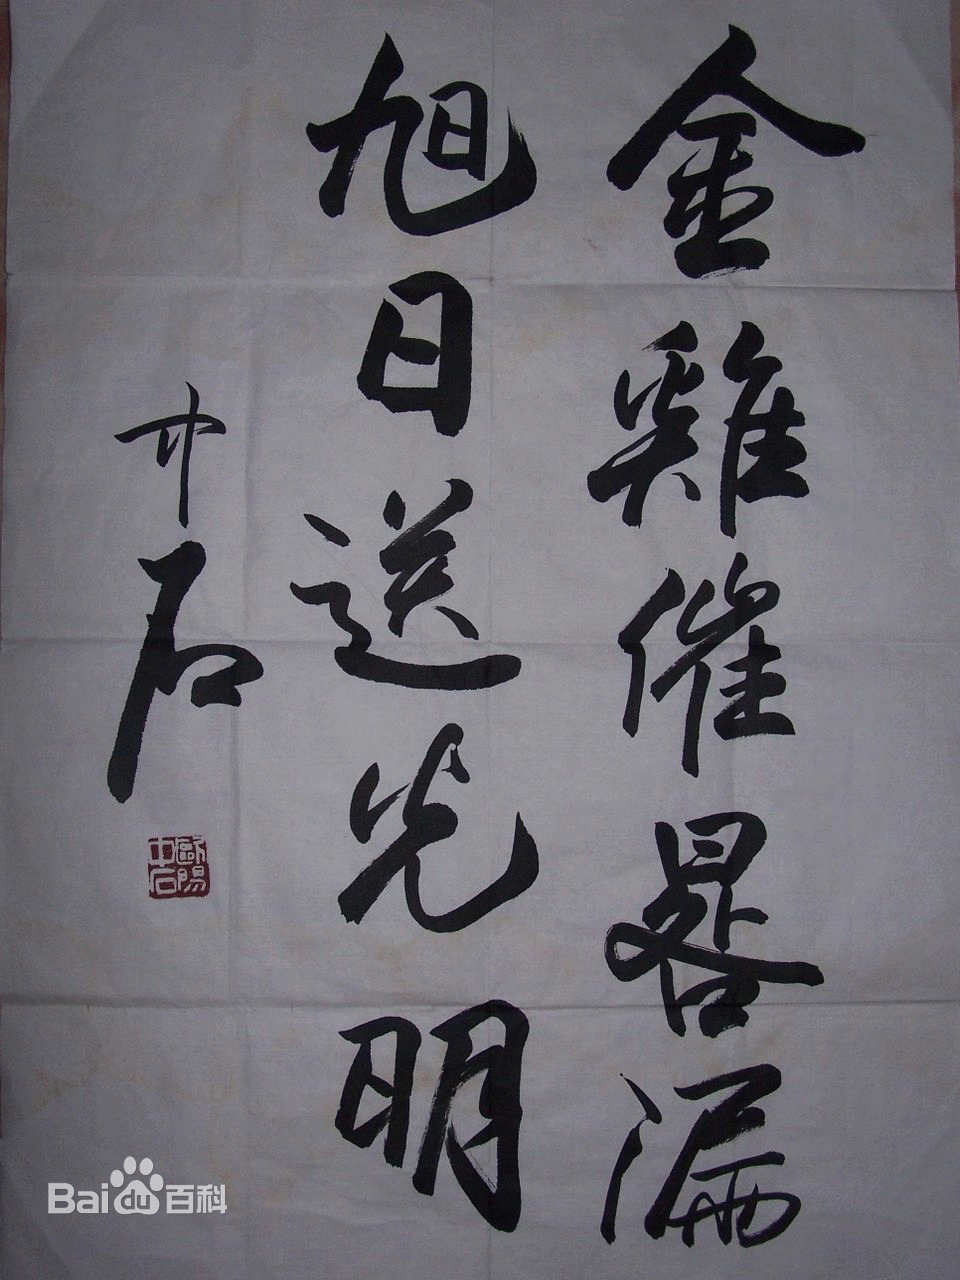 金雞催晷漏
旭日送光明
中石
歐陽
中石
Bai du 百科